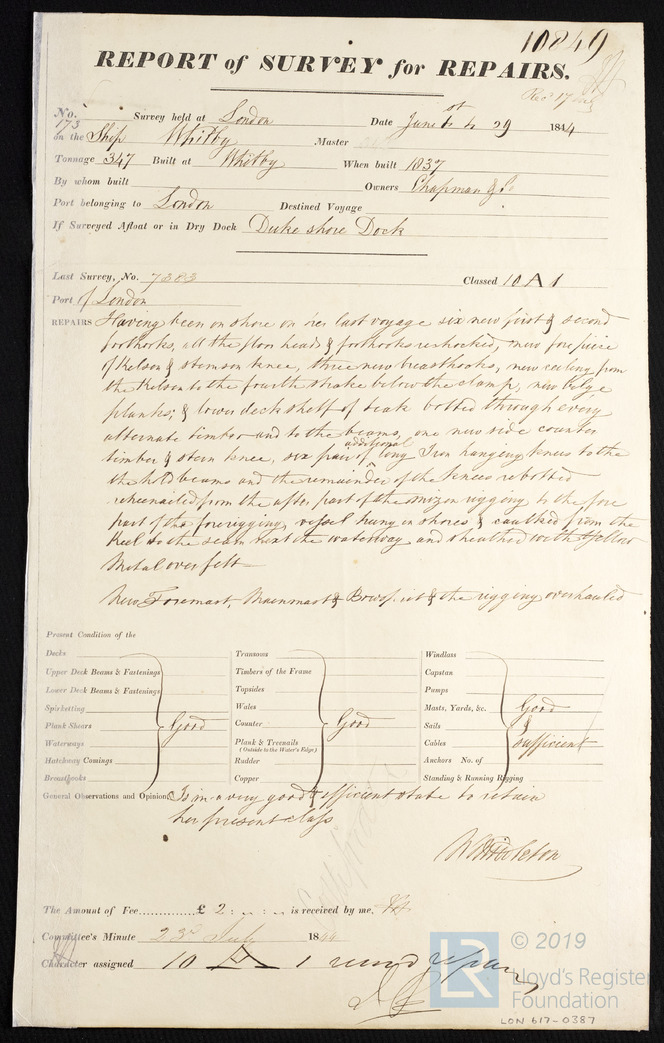 10849
REPORT of SURVEY for REPAIRS.
Rec 17
No. 173 Survey held at London Date June 4 29 1844
on the Ship Whitby Master
Tonnage 347 Built at Whitby When built 1837
By whom built Owners Chapman & Co
Port belonging to London Destined Voyage
If Surveyed Afloat or in Dry Dock Duke shore Dock
Last Survey, No. 7383 Classed 10 A 1
Port of London
REPAIRS Having been on shore on her last voyage six new first & second
foothooks, all the floor heads & foothooks rechocked, new fore piece
of Kelson & stemson knee, three new breasthooks, new ceiling from
the Kelson to the fourth strake below the clamp, new bilge
planks, & lower deck shelf of teak bolted through every
alternate timber and to the beams, one new side counter
timber & stern knee, six pair of additional long Iron hanging knees to the
the hold beams and the remainder of the knees rebolted
retreenailed from the after part of the mizon rigging to the fore
part of the forerigging, vessel hung in shores & caulked from the
Keel to the seam next the waterway and sheathed with Yellow
Metal over felt
New Foremast, Mainmast & Bowsprit & the rigging overhauled
Present Condition of the
Decks
Upper Deck Beams & Fastenings
Lower Deck Beams & Fastenings
Spirketting
Plank Shears
Waterways
Hatchway Comings
Breasthooks
Good
Transoms
Timbers of the Frame
Topsides
Wales
Counter
Plank & Treenails
(Outside to the Water's Edge)
Rudder
Copper
Good
Windlass
Capstan
Pumps
Masts, Yards, &c.
Sails
Cables
Anchors No. of
Standing & Running Rigging
Good
&
sufficient
General Observations and Opinion Is in a very good & efficient state to retain
her present class
The Amount of Fee..............£ 2 : - : - is received by me,
Committee's Minute 23rd July 1844
Character assigned 10 A 1
© 2019
LR
Lloyd's Register
Foundation
LON 617-0387